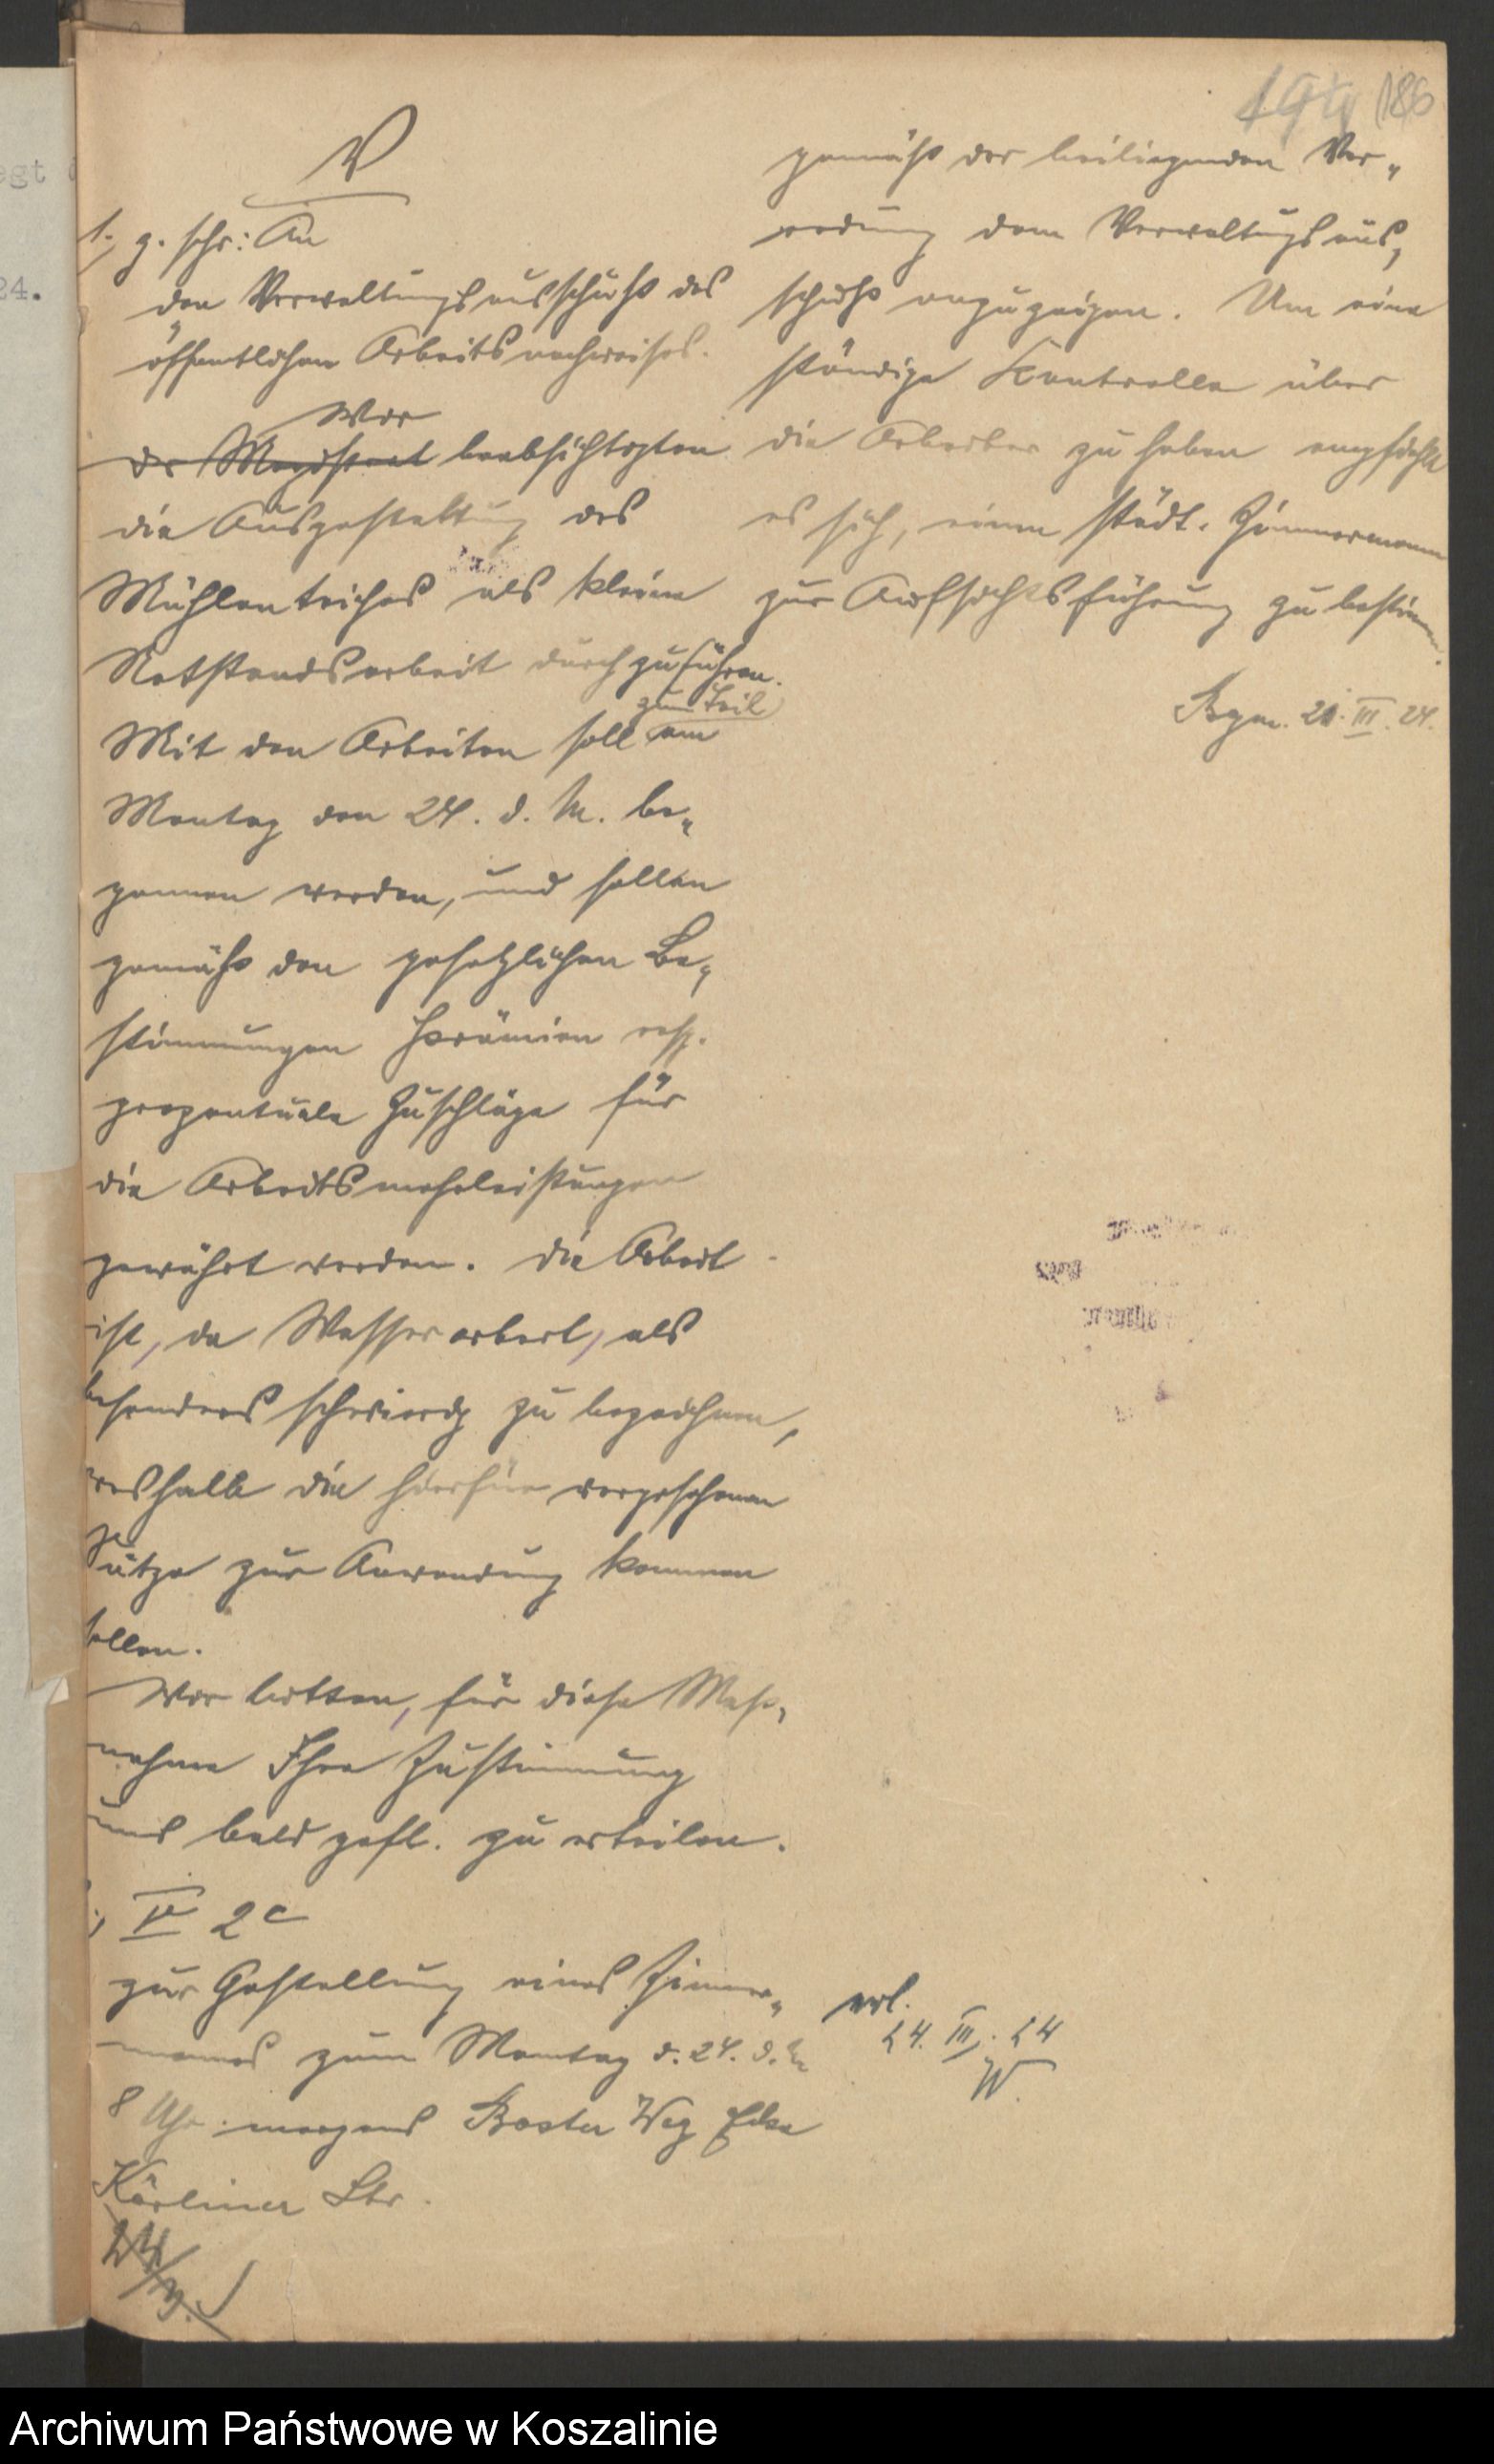 186
V
1., g. schr: An
den Verwaltungsausschuß des
öffentlichen Arbeitsnachweises.
Wir
der Magistrat beabsichtigten
die Ausgestaltung des
Mühlenteiches als kleine
Notstandsarbeit durchzuführen.
zum Teil
Mit den Arbeiten soll am
Montag den 24. d. M. be-
gonnen werden, und sollen
gemäß den gesetzlichen Be-
stimmungen Prämien resp.
prozentuale Zuschläge für
die Arbeitsmehrleistungen
gewährt werden. Die Arbeit
ist, da Wasserarbeit, als
besonders schwierig zu bezeichnen,
weshalb die hierfür vorgesehenen
Sätze zur Anwendung kommen
sollen.
Wir bitten, für diese Maß-
nahme Ihre Zustimmung
uns bald gefl. zu erteilen.
IV 2c
zur Gestellung eines Zimmer-
manns zum Montag d. 24. d. M.
8 Uhr morgens Baster Weg Ecke
Körliner Str.
24/3.
gemäß der beiliegenden Ver-
ordnung dem Verwaltungsaus-
schuß anzuzeigen. Um eine
ständige Kontrolle über
die Arbeiter zu haben empfiehlt
es sich, einen städt. Zimmermann
zur Aufsichtsführung zu bestimmen.
21. III. 24.
erl.
24. III. 24
W.
egt
24.
Archiwum Państwowe w Koszalinie